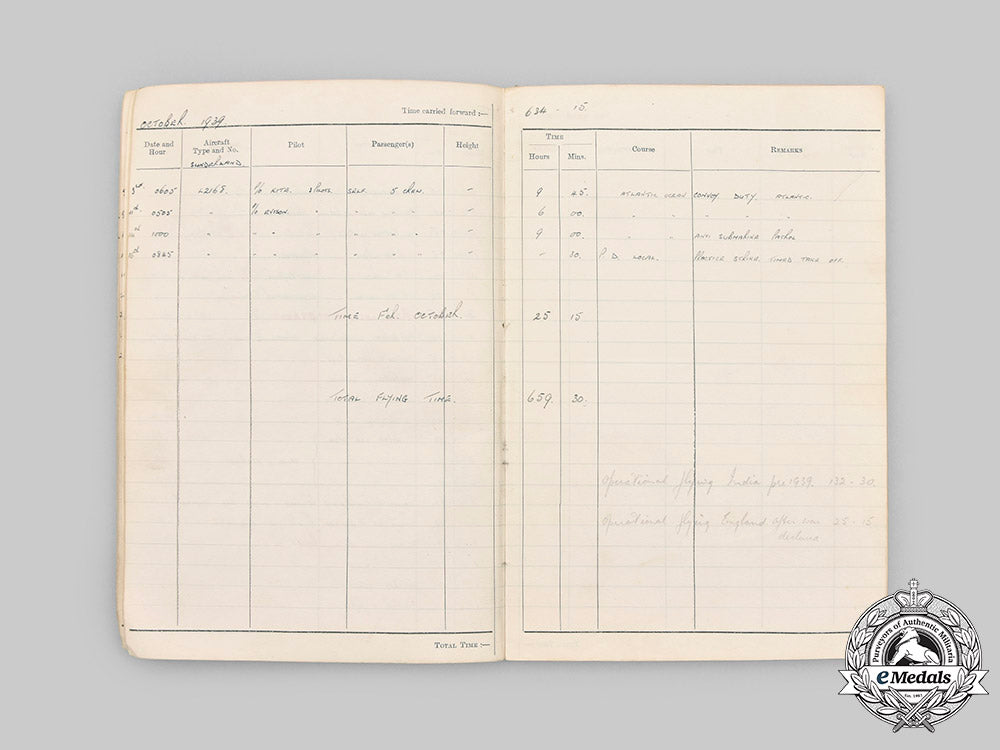 OCTOBER. 1939.
Time carried forward :—
634 - 15
Date and Hour
Aircraft Type and No.
Pilot
Passenger(s)
Height
TIME
Hours
Mins.
Course
REMARKS
SUNDERLAND.
0605 L2165. F/O 2 Pilots. SELF. 5 CREW. - 9 45. ATLANTIC OCEAN CONVOY DUTY. ATLANTIC.
0505 " F/O " " " " - 6 00. " " " " "
1000 " " " " " " " - 9 00. " " ANTI SUBMARINE PATROL
0845 " " " " " " " - - 30. P.D. LOCAL. PRACTICE STRIKE. TIMED TAKE OFF.
TIME FOR OCTOBER. 25 15
TOTAL FLYING TIME. 659. 30.
operational flying India pre 1939. 132 - 30.
operational flying England after war 25 - 15
declared
TOTAL TIME :—
Purveyors of Authentic Militaria
eMedals
Est. 1967